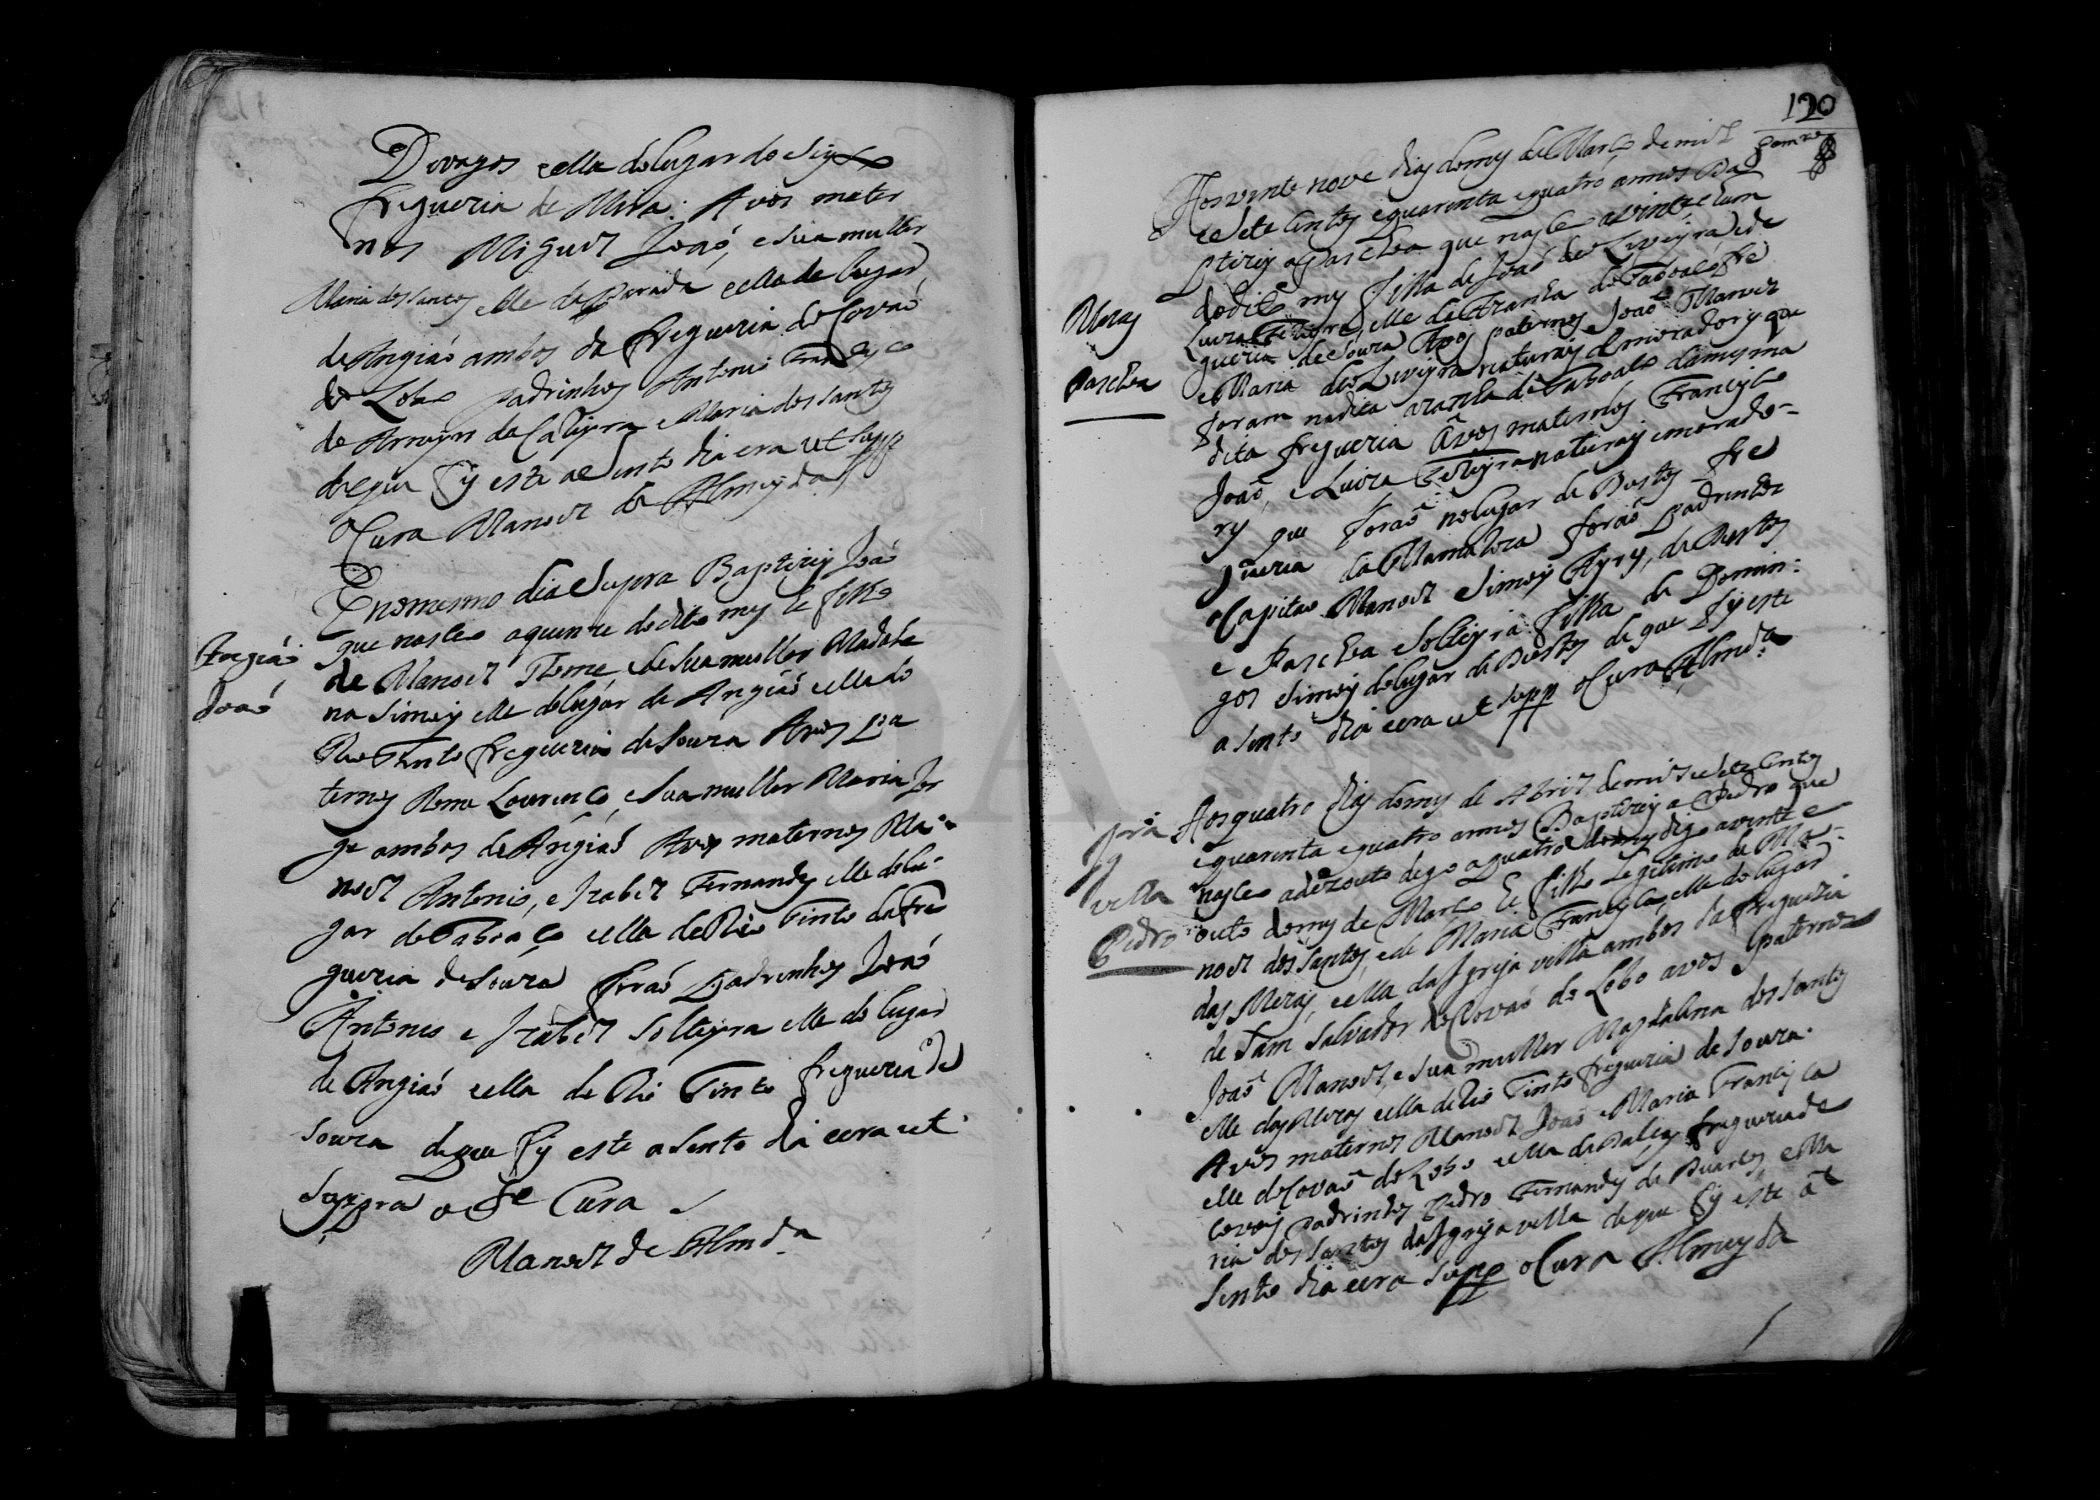 De vagos eella do lugar do Sey
freguezia de Mira: Avos mater
nos Miguel Joaõ, e sua mulher
Maria dos Santos elle da Parada eella do lugar
de Angiaõ ambos da freguezia de Covaõ
do Lobo padrinhos Antonio Francisco
de e Maria dos Santos
de que fis este asento dia era ut supp
o Cura Manoel de Almeyda
E no mesmo dia supra Baptizey Joaõ
que nasceo a quinze do dito mes he filho
de Manoel Thome e de sua mulher Madale
na Simois elle do lugar de Angiaõ eella do
Rio Tinto freguezia de Souza Avos pa
ternos Lourenço, e sua mulher Maria Jor
ge ambos de Angiaõ Avos maternos Ma
noel Antonio, e Izabel Fernandes elle do lu
gar de Tabraço eella de Rio Tinto da fre
guezia de Souza foraõ Padrinhos Joaõ
Antonio e Izabel Solteyra elle do lugar
de Angiaõ eella de Rio Tinto freguezia de
Souza de que fis este asento dia eera ut
supra o Cura
Manoel de Almda
Angiaõ
Joaõ
120
Aos vinte nove dias do mes de Março de mil
e sete centos e quarenta e quatro annos Ba
ptizey a Paschoa que nasceo a vinte e hum
do dito mes filha de Joaõ de Oliveyra e de
Luiza elle da Granja de Taboaço fre
guezia de Souza Avos paternos Joaõ Manoel
e Maria de Oliveyra naturais e moradores que
foram na dita Granja de Taboaço da mesma
dita freguezia Avos maternos Francisco
Joaõ, e Luiza naturais e morado-
res que foraõ no lugar de Bustos fre
guezia da Mamarroza foraõ padrinhos
o Capitaõ Manoel Simois Ayres, de Bustos
e Paschoa Solteyra filha de Domin:
gos Simois do lugar de Bustos de que fis este
asento dia eera ut supp o Cura Almda
Meras
Paschoa
Aos quatro dias do mes de Abril de mil e sete centos
e quarenta e quatro annos Baptizey a Pedro que
nasceo a dezouto digo a quatro do mes digo a vinte e
outo do mes de Março he filho Legitimo de Ma-
noel dos Santos, e de Maria Francisca, elle do lugar
das Meras, eella da Igreja velha ambos da freguezia
de Sam Salvador de Covaõ do Lobo avos paternos
Joaõ Manoel, e sua mulher Magdalena dos Santos
elle das Meras eella de Rio Tinto freguezia de Souza.
Avós maternos Manoel Joaõ e Maria Francisca
elle de Covaõ do Lobo eella da freguezia de
Covois padrinhos Pedro Fernandes de e Ma
ria dos Santos da Igreja velha de que fis este a
sento dia eera supp o Cura Almeyda
Igreja
velha
Pedro